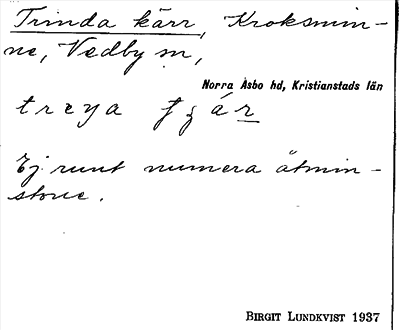 Trinda kärr, Kroksmin-
ne, Vedby sn,
Norra Åsbo hd, Kristianstads län
Ej runt numera åtmin-
stone.
BIRGIT LUNDKVIST 1937